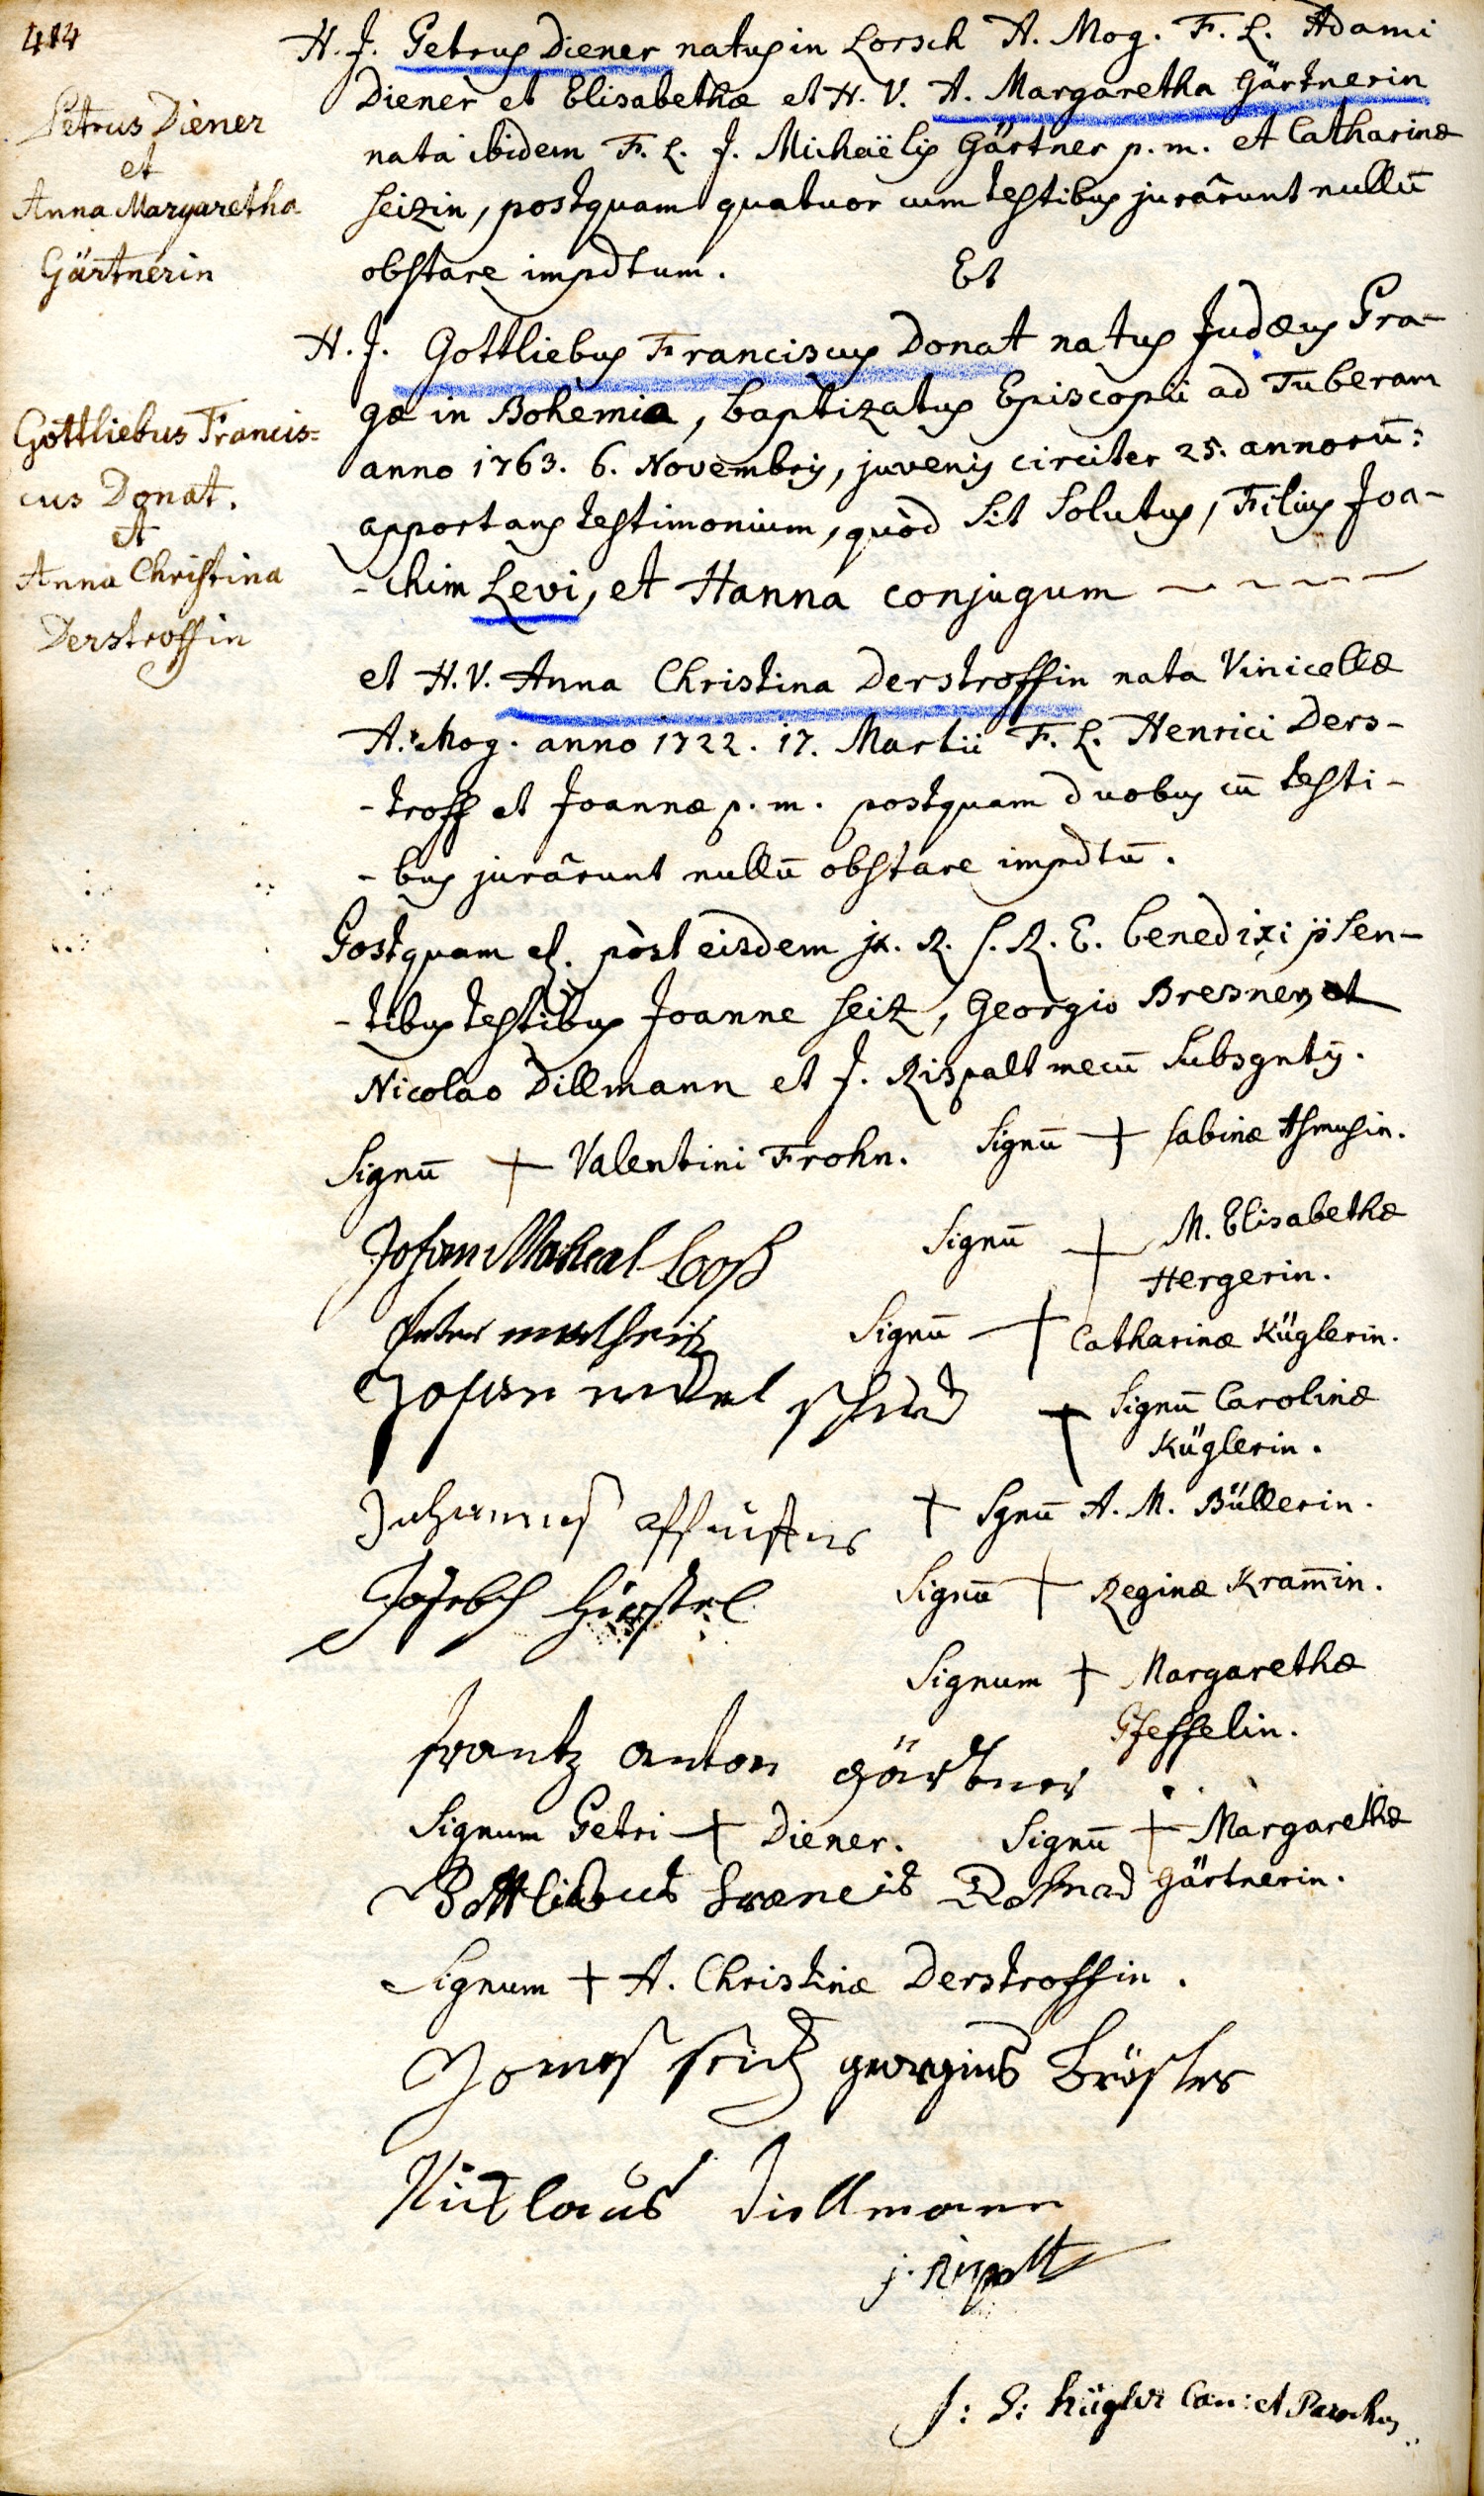 414
Petrus Diener
et
Anna Margaretha
Gärtnerin
H. J. Petrus Diener natus in Lorsch A. Mog. F. L. Adami
Diener et Elisabethæ et H. V. A. Margaretha Gärtnerin
nata ibidem F. L. J. Michaëlis Gärtner p. m. et Catharinæ
Seizin, postquam quatuor cum testibus jurârunt nullū
obstare impdtum.
Et
Gottliebus Francis=
cus Donat.
et
Anna Christina
Derstroffin
H. J. Gottliebus Franciscus Donat natus Judæus Pra-
gæ in Bohemia, baptizatus Episcopii ad Tuberam
anno 1763. 6. Novembris, juvenis circiter 25. annorū:
apportans testimonium, quòd sit solutus, Filius Joa-
-chim Levi, et Hanna conjugum
et H. V. Anna Christina Derstroffin nata Vinicellæ
A. Mog. anno 1722. 17. Martii F. L. Henrici Ders-
-troff et Joannæ p. m. postquam duobus cū testi-
-bus jurârunt nullū obstare impdtū.
Postquam et. pòst eisdem jx. R. S. R. E. benedixi p̈sen-
-tibus testibus Joanne Seiz, Georgio Bresner, et
Nicolao Dillmann et J. Rispalt mecū subsgntis.
Signū + Valentini Frohn. Signū + Sabinæ Asmusin.
Signū + M. Elisabethæ
Hergerin.
Signū + Catharinæ Küglerin.
+ Signū Carolinæ
Küglerin.
+ Sgnū A. M. Büllerin.
Signū + Reginæ Kram̄in.
Signum + Margarethæ
Pfeffelin.
Frantz anton gärtner
Signum Petri + Diener. Signū + Margarethæ
Gärtnerin.
Signum + A. Christinæ Derstroffin.
georgius
Nicklaus Dillmann
j. Rispalt
Kügler Can: et Parochus